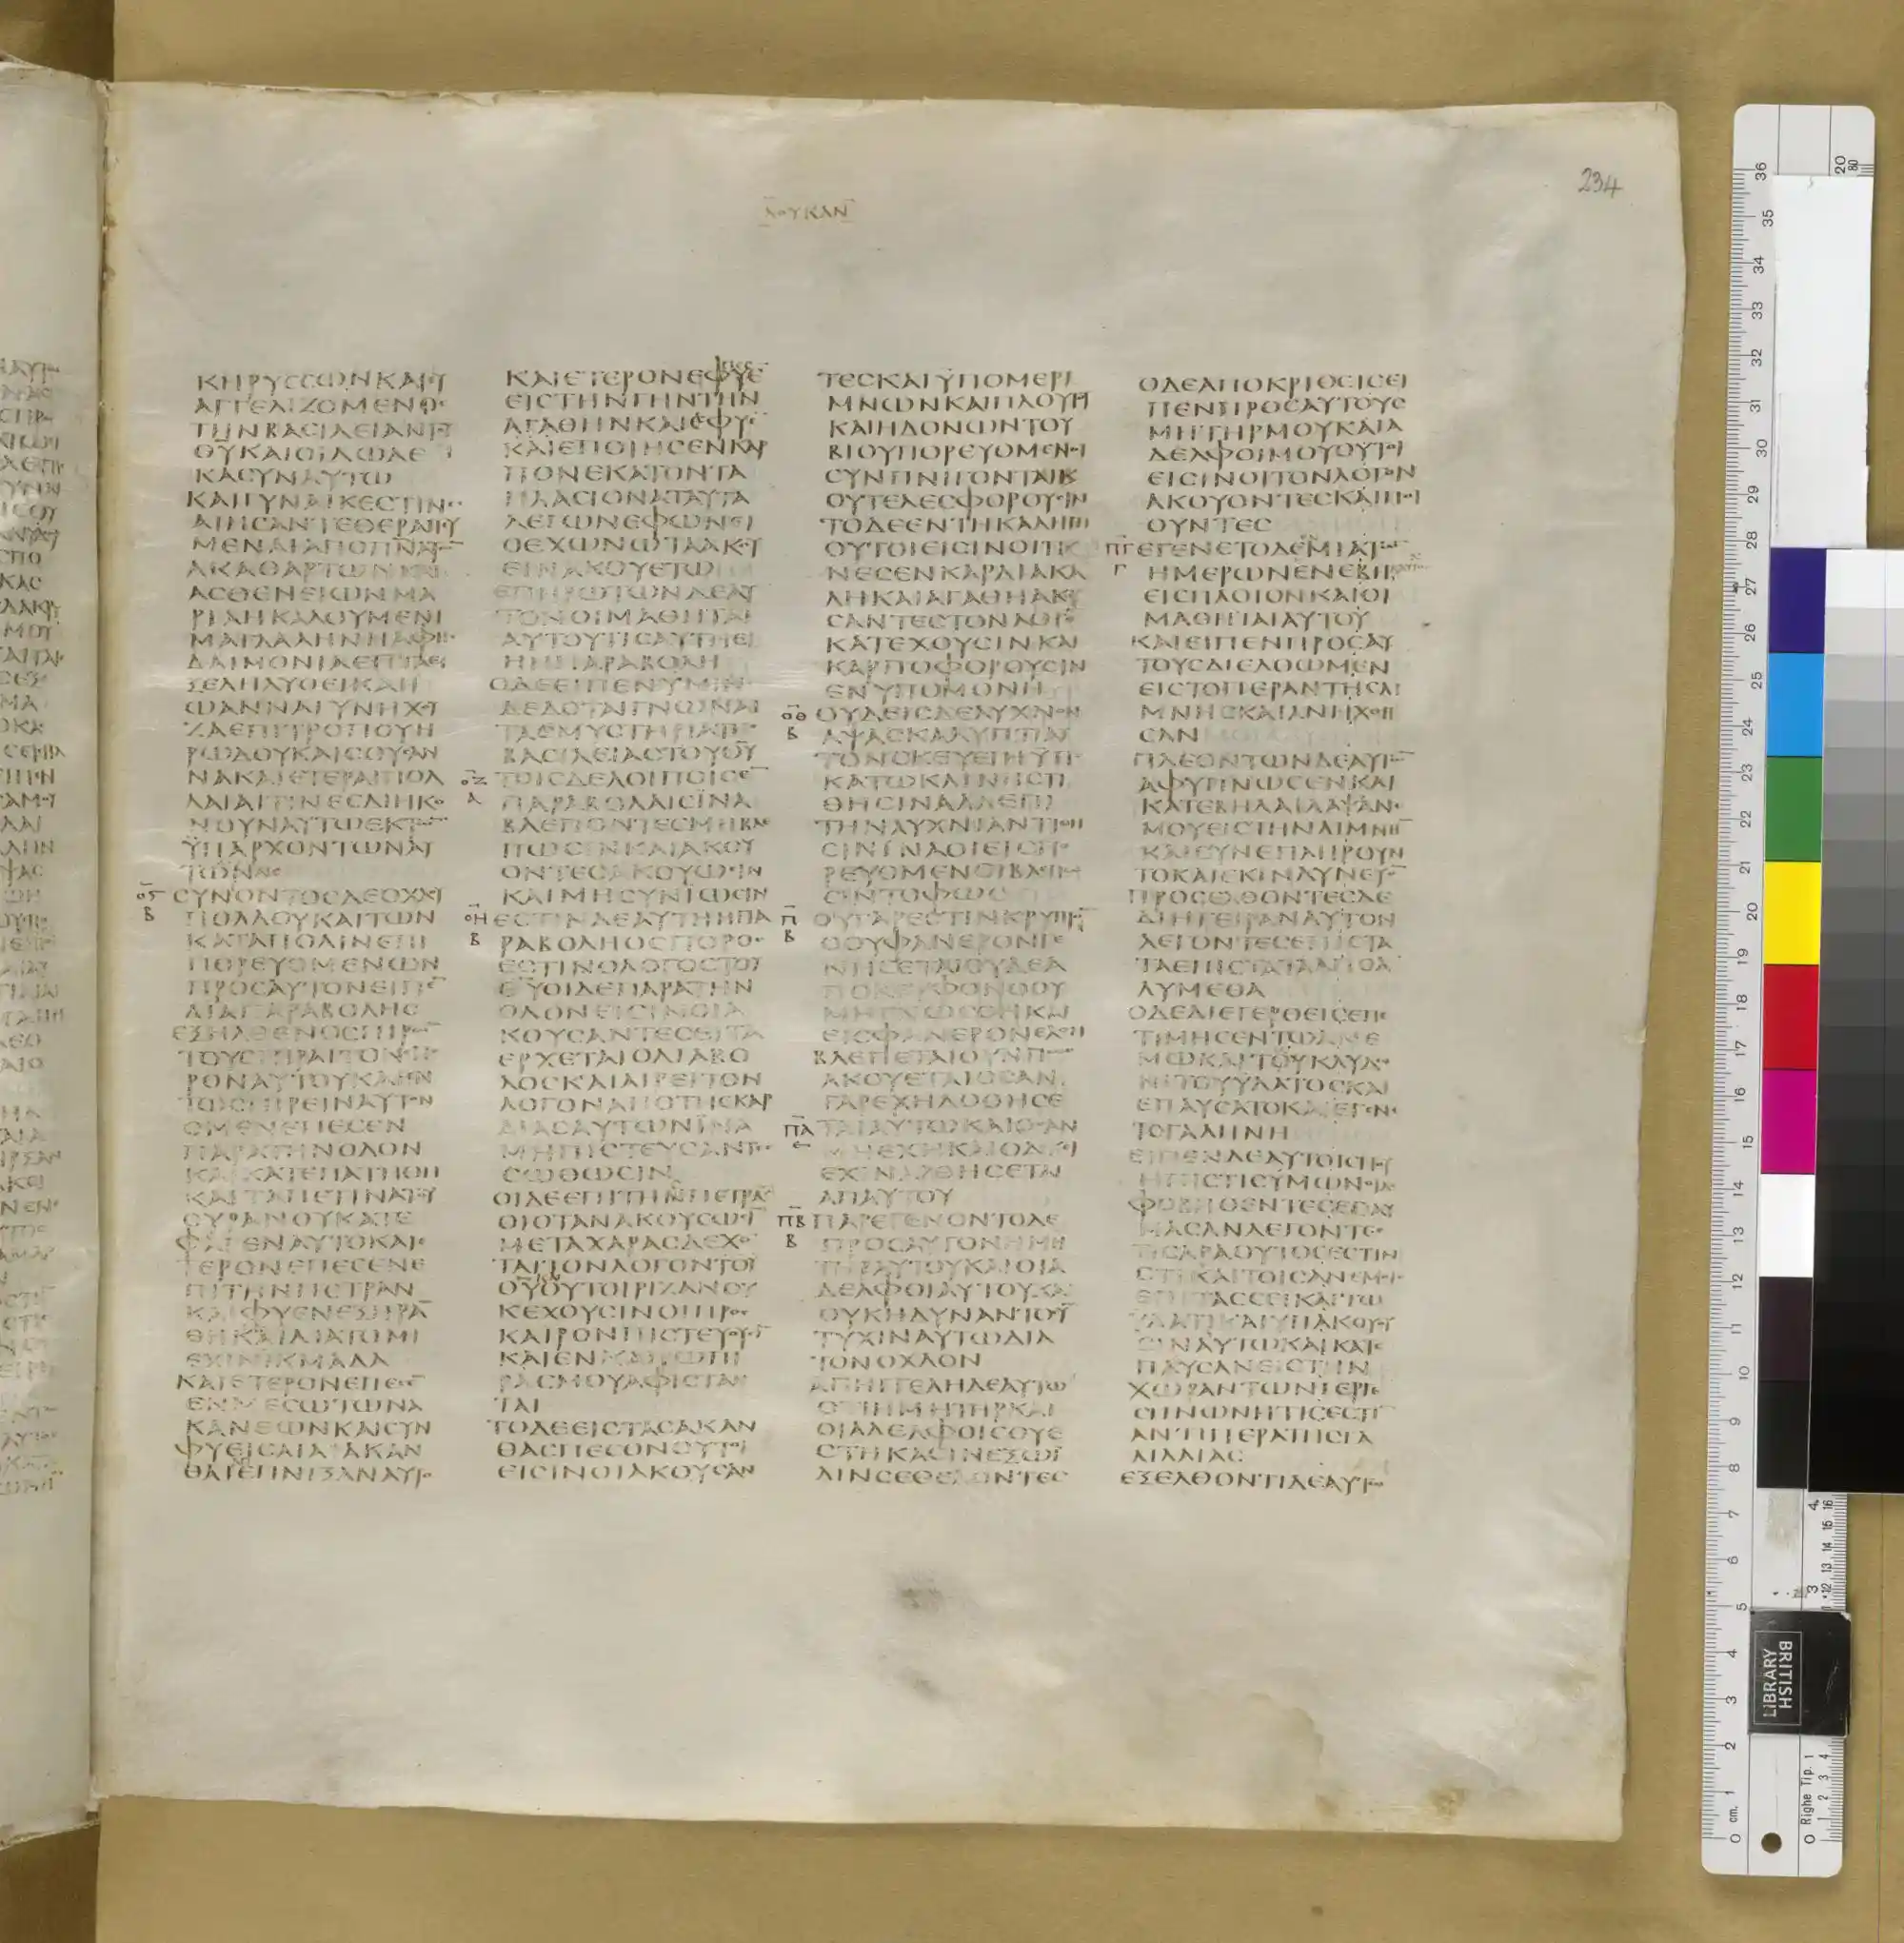 234
ΛΟΥΚΑΝ
ΚΗΡΥССΩΝΚΑΙΕΥ
ΑΓΓΕΛΙΖΟΜΕΝΟС
ΤΗΝΒΑСΙΛΕΙΑΝΤΟΥ
ΘΥΚΑΙΟΙΔΩΔΕ
ΚΑСΥΝΑΥΤΩ
ΚΑΙΓΥΝΑΙΚΕСΤΙΝΕС
ΑΙΗСΑΝΤΕΘΕΡΑΠΕΥ
ΜΕΝΑΙΑΠΟΠΝΑΤΩΝ
ΑΚΑΘΑΡΤΩΝΚΑΙ
ΑСΘΕΝΕΙΩΝΜΑ
ΡΙΑΗΚΑΛΟΥΜΕΝΗ
ΜΑΓΔΑΛΗΝΗΑΦΗС
ΔΑΙΜΟΝΙΑΕΠΤΑΕ
ΞΕΛΗΛΥΘΕΙΚΑΙ
ΩΑΝΝΑΓΥΝΗΧΟΥ
ΖΑΕΠΙΤΡΟΠΟΥΗ
ΡΩΔΟΥΚΑΙСΟΥСΑΝ
ΝΑΚΑΙΕΤΕΡΑΙΠΟΛ
ΛΑΙΑΙΤΙΝΕСΔΙΗΚΟ
ΝΟΥΝΑΥΤΩΕΚΤΩΝ
ΫΠΑΡΧΟΝΤΩΝΑΥ
ΤΩΝ
ΟϚ СΥΝΟΝΤΟСΔΕΟΧΛΟΥ
Β ΠΟΛΛΟΥΚΑΙΤΩΝ
ΚΑΤΑΠΟΛΙΝΕΠΙ
ΠΟΡΕΥΟΜΕΝΩΝ
ΠΡΟСΑΥΤΟΝΕΙΠΕΝ
ΔΙΑΠΑΡΑΒΟΛΗС
ΕΞΗΛΘΕΝΟСΠΙΡΩΝ
ΤΟΥСΠΙΡΑΙΤΟΝСΠΟ
ΡΟΝΑΥΤΟΥΚΑΙΕΝ
ΤΩСΠΙΡΕΙΝΑΥΤΟΝ
ΟΜΕΝΕΠΕСΕΝ
ΠΑΡΑΤΗΝΟΔΟΝ
ΚΑΙΚΑΤΕΠΑΤΗΘΗ
ΚΑΙΤΑΠΕΤΙΝΑΤΟΥ
ΟΥΡΑΝΟΥΚΑΤΕ
ΦΑΓΕΝΑΥΤΟΚΑΙΕ
ΤΕΡΟΝΕΠΕСΕΝΕ
ΠΙΤΗΝΠΕΤΡΑΝ
ΚΑΙΦΥΕΝΕΞΗΡΑ
ΘΗΚΑΙΔΙΑΤΟΜΗ
ΕΧΙΝΙΚΜΑΔΑ
ΚΑΙΕΤΕΡΟΝΕΠΕСΕΝ
ΕΝΜΕСΩΤΩΝΑ
ΚΑΝΘΩΝΚΑΙСΥΝ
ΦΥΕΙСΑΙΑΙΑΚΑΝ
ΘΑΙΕΠΝΙΞΑΝΑΥΤΟ
ΚΑΙΕΤΕΡΟΝΕΦΥΕ
ΕΙСΤΗΝΓΗΝΤΗΝ
ΑΓΑΘΗΝΚΑΙΕΦΥΕ
ΚΑΙΕΠΟΙΗСΕΝΚΑΡ
ΠΟΝΕΚΑΤΟΝΤΑ
ΠΛΑСΙΟΝΑΤΑΥΤΑ
ΛΕΓΩΝΕΦΩΝΕΙ
ΟΕΧΩΝΩΤΑΑΚΟΥ
ΕΙΝΑΚΟΥΕΤΩ
ΕΠΗΡΩΤΩΝΔΕΑΥ
ΤΟΝΟΙΜΑΘΗΤΑΙ
ΑΥΤΟΥΤΙСΑΥΤΗΕΙ
ΗΗΠΑΡΑΒΟΛΗ
ΟΔΕΕΙΠΕΝΥΜΙΝ
ΔΕΔΟΤΑΙΓΝΩΝΑΙ
ΤΑΜΥСΤΗΡΙΑΤΗС
ΒΑСΙΛΕΙΑСΤΟΥΘΥ
ΟΖ ΤΟΙСΔΕΛΟΙΠΟΙСΕΝ
Α ΠΑΡΑΒΟΛΑΙСΪΝΑ
ΒΛΕΠΟΝΤΕСΜΗΒΛΕ
ΠΩСΙΝΚΑΙΑΚΟΥ
ΟΝΤΕСΑΚΟΥΩСΙΝ
ΚΑΙΜΗСΥΝΙΩСΙΝ
ΟΗ ΕСΤΙΝΔΕΑΥΤΗΗΠΑ
Β ΡΑΒΟΛΗΟСΠΟΡΟС
ΕСΤΙΝΟΛΟΓΟСΤΟΥ
ΘΥΟΙΔΕΠΑΡΑΤΗΝ
ΟΔΟΝΕΙСΙΝΟΙΑ
ΚΟΥСΑΝΤΕСΕΙΤΑ
ΕΡΧΕΤΑΙΟΔΙΑΒΟ
ΛΟСΚΑΙΑΙΡΕΙΤΟΝ
ΛΟΓΟΝΑΠΟΤΗСΚΑΡ
ΔΙΑСΑΥΤΩΝΪΝΑ
ΜΗΠΙСΤΕΥСΑΝΤΕС
СΩΘΩСΙΝ
ΟΙΔΕΕΠΙΤΗΝΠΕΤΡΑΝ
ΟΙΟΤΑΝΑΚΟΥСΩСΙΝ
ΜΕΤΑΧΑΡΑСΔΕΧΟΝ
ΤΑΙΤΟΝΛΟΓΟΝΤΟΥ
ΘΥΟΥΤΟΙΡΙΖΑΝΟΥ
ΚΕΧΟΥСΙΝΟΙΠΡΟС
ΚΑΙΡΟΝΠΙСΤΕΥΟΥСΙΝ
ΚΑΙΕΝΚΑΙΡΩΠΙ
ΡΑСΜΟΥΑΦΙСΤΑΝ
ΤΑΙ
ΤΟΔΕΕΙСΤΑСΑΚΑΝ
ΘΑСΠΕСΟΝΟΥΤΟΙ
ΕΙСΙΝΟΙΑΚΟΥСΑΝ
ΤΕСΚΑΙΫΠΟΜΕΡΙ
ΜΝΩΝΚΑΙΠΛΟΥΤΟΥ
ΚΑΙΗΔΟΝΩΝΤΟΥ
ΒΙΟΥΠΟΡΕΥΟΜΕΝΟΙ
СΥΝΠΝΙΓΟΝΤΑΙΚΑΙ
ΟΥΤΕΛΕСΦΟΡΟΥСΙΝ
ΤΟΔΕΕΝΤΗΚΑΛΗΓΗ
ΟΥΤΟΙΕΙСΙΝΟΙΤΙ
ΝΕСΕΝΚΑΡΔΙΑΚΑ
ΛΗΚΑΙΑΓΑΘΗΑΚΟΥ
СΑΝΤΕСΤΟΝΛΟΓΟΝ
ΚΑΤΕΧΟΥСΙΝΚΑΙ
ΚΑΡΠΟΦΟΡΟΥСΙΝ
ΕΝΥΠΟΜΟΝΗ
ΟΘ ΟΥΔΕΙСΔΕΛΥΧΝΟΝ
Β ΑΨΑСΚΑΛΥΠΤΙΑΥ
ΤΟΝСΚΕΥΕΙΗΫΠΟ
ΚΑΤΩΚΛΙΝΗСΤΙ
ΘΗСΙΝΑΛΛΕΠΙ
ΤΗΝΛΥΧΝΙΑΝΤΙΘΗ
СΙΝΪΝΑΟΙΕΙСΠΟ
ΡΕΥΟΜΕΝΟΙΒΛΕΠΩ
СΙΝΤΟΦΩС
Π ΟΥΓΑΡΕСΤΙΝΚΡΥΠΤΟΝ
Β ΟΟΥΦΑΝΕΡΟΝΓΕ
ΝΗСΕΤΑΙΟΥΔΕΑ
ΠΟΚΡΥΦΟΝΟΟΥ
ΜΗΓΝΩСΘΗΚΑΙ
ΕΙСΦΑΝΕΡΟΝΕΛΘΗ
ΒΛΕΠΕΤΑΙΟΥΝΠΩС
ΑΚΟΥΕΤΑΙΟСΑΝ
ΓΑΡΕΧΗΔΟΘΗСΕ
ΠΑ ΤΑΙΑΥΤΩΚΑΙΟСΑΝ
ΜΗΕΧΗΚΑΙΟΔΟΚΙ
ΕΧΙΝΑΡΘΗСΕΤΑΙ
ΑΠΑΥΤΟΥ
ΠΒ ΠΑΡΕΓΕΝΟΝΤΟΔΕ
Β ΠΡΟСΑΥΤΟΝΗΜΗ
ΤΗΡΑΥΤΟΥΚΑΙΟΙΑ
ΔΕΛΦΟΙΑΥΤΟΥΚΑΙ
ΟΥΚΗΔΥΝΑΝΤΟСΥΝ
ΤΥΧΙΝΑΥΤΩΔΙΑ
ΤΟΝΟΧΛΟΝ
ΑΠΗΓΓΕΛΗΔΕΑΥΤΩ
ΟΤΙΗΜΗΤΗΡΚΑΙ
ΟΙΑΔΕΛΦΟΙСΟΥΕ
СΤΗΚΑСΙΝΕΞΩΙ
ΔΙΝСΕΘΕΛΟΝΤΕС
ΟΔΕΑΠΟΚΡΙΘΙСΕΙ
ΠΕΝΠΡΟСΑΥΤΟΥС
ΜΗΤΗΡΜΟΥΚΑΙΑ
ΔΕΛΦΟΙΜΟΥΟΥΤΟΙ
ΕΙСΙΝΟΙΤΟΝΛΟΓΟΝ
ΑΚΟΥΟΝΤΕСΚΑΙΠΟΙ
ΟΥΝΤΕС
ΠΓ ΕΓΕΝΕΤΟΔΕΜΙΑΤΩΝ
Γ ΗΜΕΡΩΝΕΝΕΒΗ
ΕΙСΠΛΟΙΟΝΚΑΙΟΙ
ΜΑΘΗΤΑΙΑΥΤΟΥ
ΚΑΙΕΙΠΕΝΠΡΟСΑΥ
ΤΟΥСΔΙΕΛΘΩΜΕΝ
ΕΙСΤΟΠΕΡΑΝΤΗСΛΙ
ΜΝΗСΚΑΙΑΝΗΧΘΗ
СΑΝ
ΠΛΕΟΝΤΩΝΔΕΑΥΤΩΝ
ΑΦΥΠΝΩСΕΝΚΑΙ
ΚΑΤΕΒΗΛΑΙΛΑΨΑΝΕ
ΜΟΥΕΙСΤΗΝΛΙΜΝΗΝ
ΚΑΙСΥΝΕΠΛΗΡΟΥΝ
ΤΟΚΑΙΕΚΙΝΔΥΝΕΥΟΝ
ΠΡΟСΕΛΘΟΝΤΕСΔΕ
ΔΙΗΓΕΙΡΑΝΑΥΤΟΝ
ΛΕΓΟΝΤΕСΕΠΙСΤΑ
ΤΑΕΠΙСΤΑΤΑΑΠΟΛ
ΛΥΜΕΘΑ
ΟΔΕΔΙΕΓΕΡΘΕΙСΕΠΕ
ΤΙΜΗСΕΝΤΩΑΝΕ
ΜΩΚΑΙΤΟΥΚΛΥΔΩ
ΝΙΤΟΥΥΔΑΤΟСΚΑΙ
ΕΠΑΥСΑΤΟΚΑΙΕΓΕΝΕ
ΤΟΓΑΛΗΝΗ
ΕΙΠΕΝΔΕΑΥΤΟΙСΠΟΥ
ΗΠΙСΤΙСΥΜΩΝ
ΦΟΒΗΘΕΝΤΕСΕΘΑΥ
ΜΑСΑΝΛΕΓΟΝΤΕС
ΤΙСΑΡΑΟΥΤΟСΕСΤΙΝ
ΟΤΙΚΑΙΤΟΙСΑΝΕΜΟΙС
ΕΠΙΤΑССΕΙΚΑΙΤΩ
ΥΔΑΤΙΚΑΙΥΠΑΚΟΥΟΥ
СΙΝΑΥΤΩΚΑΙΚΑΤΕ
ΠΛΕΥСΑΝΕΙСΤΗΝ
ΧΩΡΑΝΤΩΝΓΕΡΓΕ
СΗΝΩΝΗΤΙСΕСΤΙΝ
ΑΝΤΙΠΕΡΑΤΗСΓΑ
ΛΙΛΑΙΑС
ΕΞΕΛΘΟΝΤΙΔΕΑΥΤΩ
BRITISH
LIBRARY
Righe Tip.
cm.